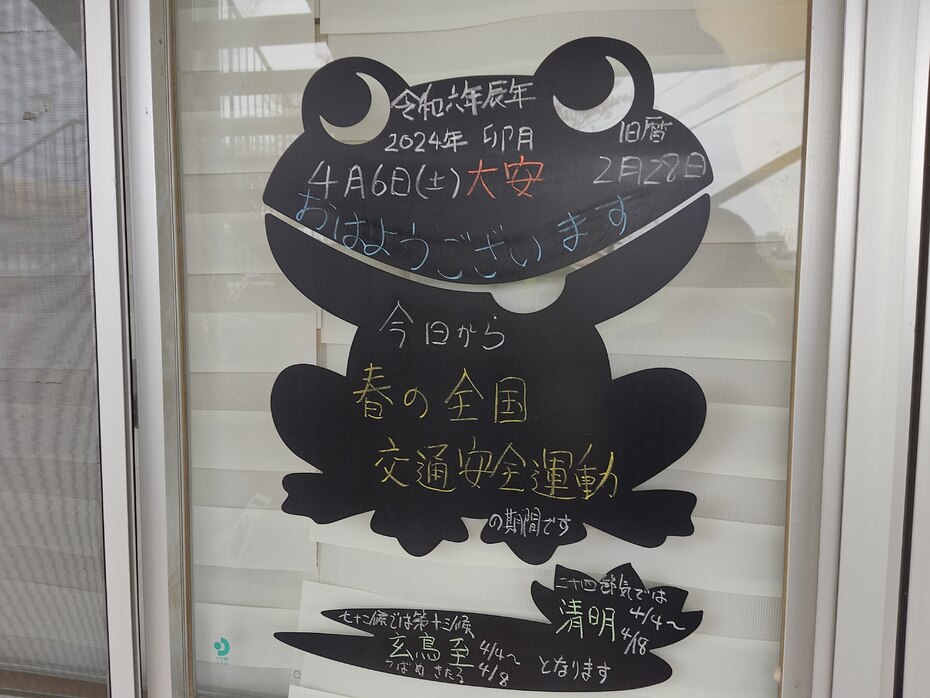 令和六年辰年
2024年 卯月
旧暦
2月28日
4月6日(土)大安
おはようございます
今日から
春の全国
交通安全運動
の期間です
二十四節気では
清明 4/4〜
4/18
七十二候では第十三候
玄鳥至 4/4〜
つばめきたる 4/8
となります